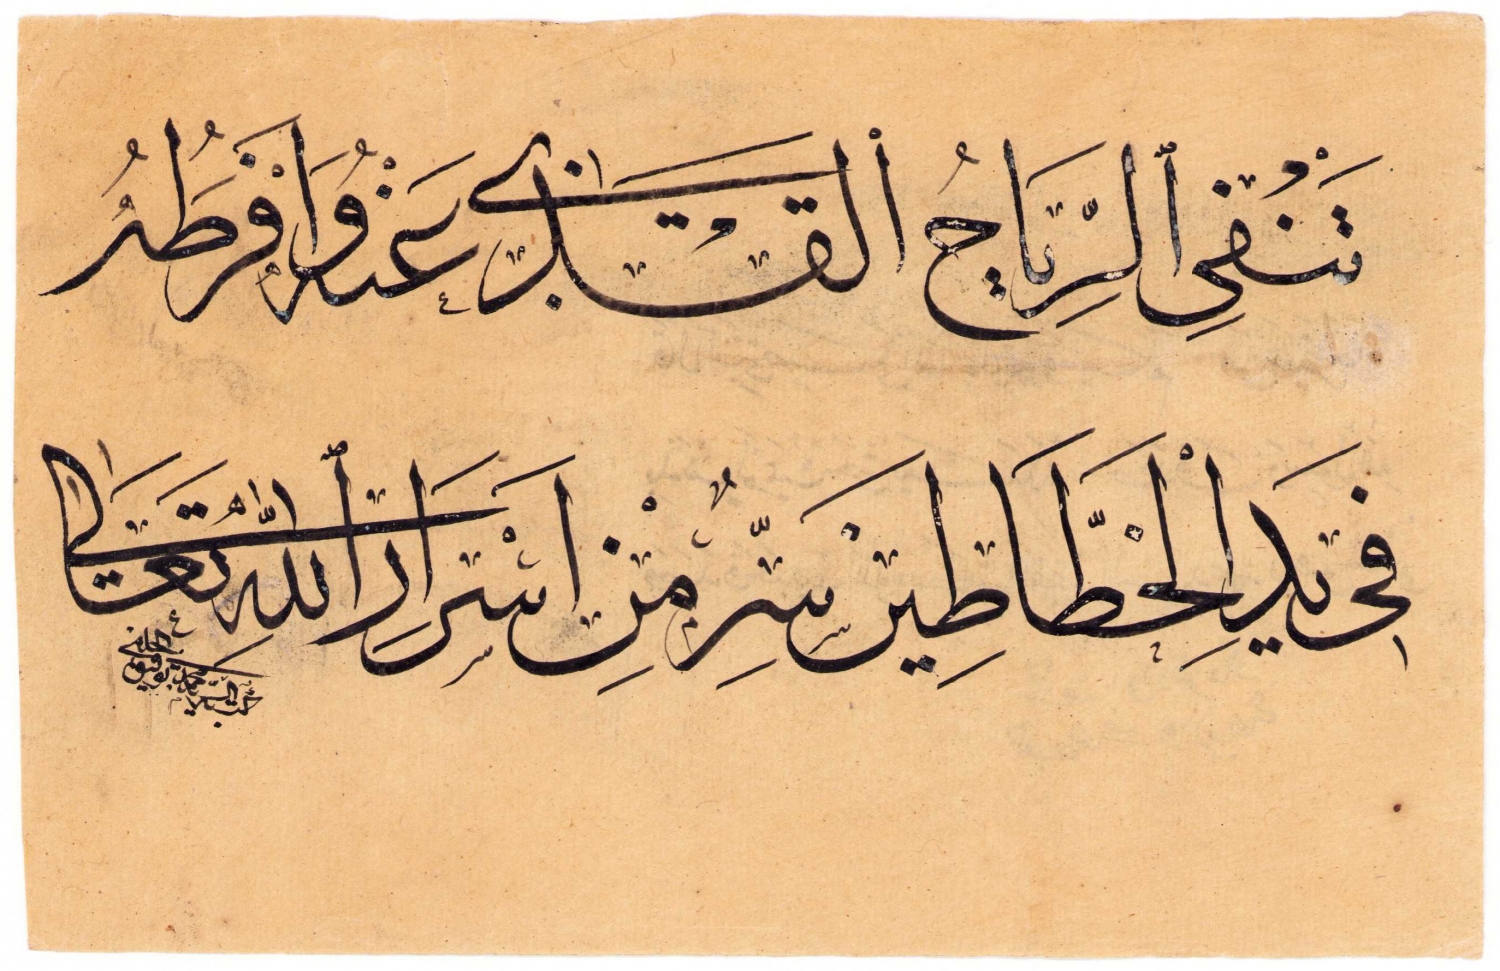 تَنْفِي ٱلرِّيَاحُ ٱلْقَذَى عَنْهُ وَافْرَطُهُ
فِي يَدِ الْخَطَّاطِينَ سِرٌّ مِنْ اَسْرَارِ ٱللّٰهِ تَعَالَى
محمد توفيق